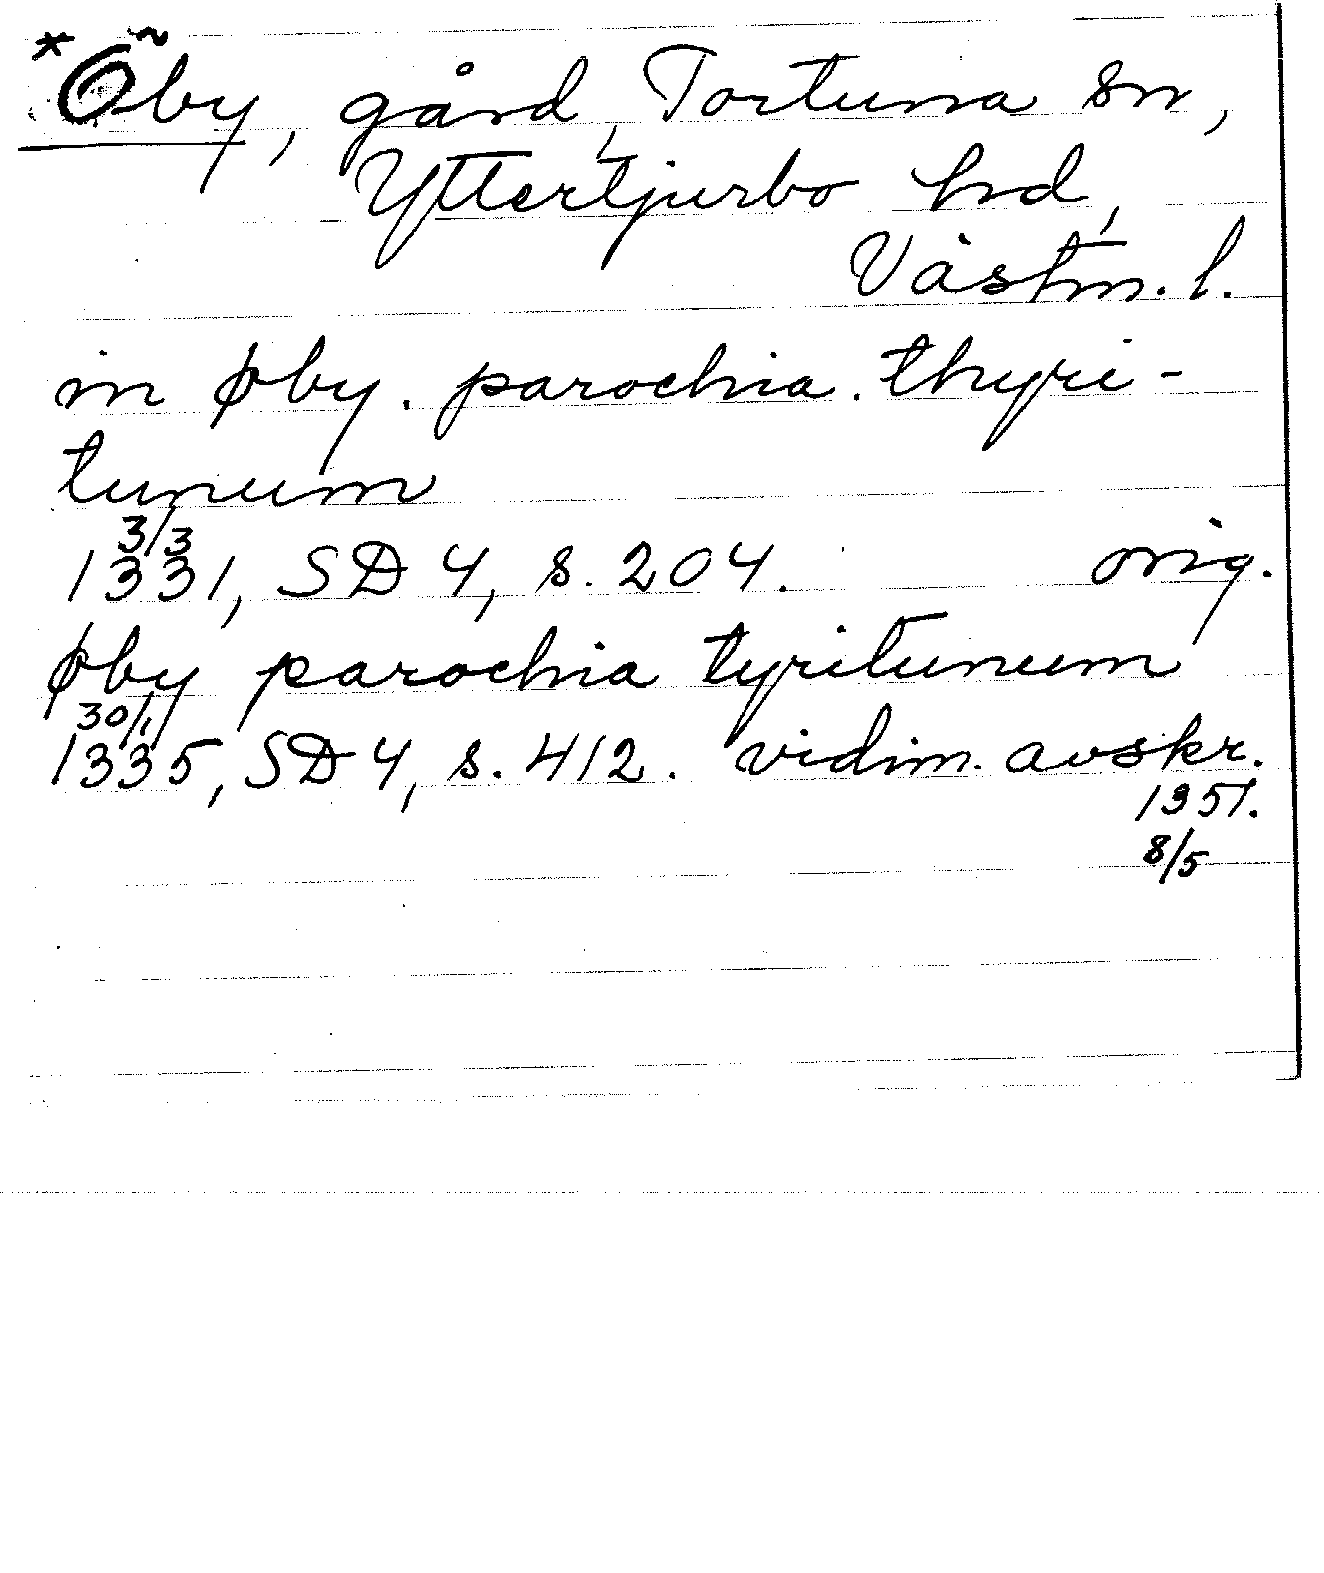 *Öby, gård, Tortuna sn,
Yttertjurbo hd,
Västm. l.
in øby. parochia. thyri-
tunum
3/3
1331, SD 4, s. 204. orig.
øby parochia tyritunum
30/1
1335, SD 4, s. 412. vidim. avskr.
1351.
8/5